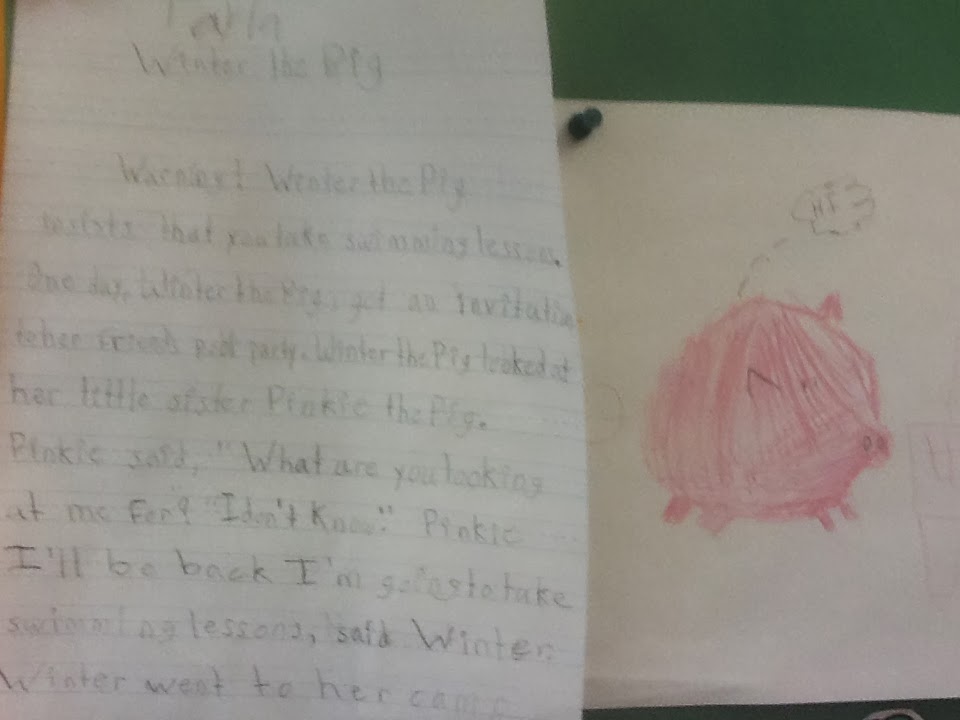 Winter the Pig
Warning! Winter the Pig
insists that you take swimming lessons.
One day, Winter the Pig got an invitation
to her friends pool party. Winter the Pig looked at
her little sister Pinkie the Pig.
Pinkie said, "What are you looking
at me For? "I don't Know." Pinkie
I'll be back I'm going to take
swimming lessons, said Winter.
Winter went to her camp
Hi